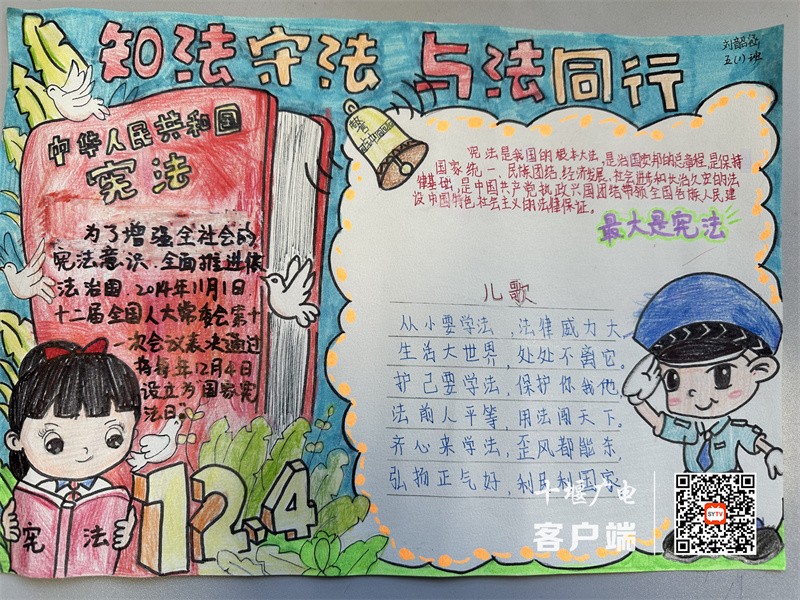 知法守法 与法同行
五(1)班
中华人民共和国
宪法
为了增强全社会的
宪法意识、全面推进依
法治国 2014年11月1日
十二届全国人大常委会第十
一次会议表决通过
将每年12月4日
设立为国家宪
法日。
警钟
宪法是我国的根本大法,是治国安邦的总章程,是保持
国家统一、民族团结、经济发展、社会进步和长治久安的法
律基础,是中国共产党执政兴国团结带领全国各族人民建
设中国特色社会主义的法律保证。
最大是宪法
儿歌
从小要学法,法律威力大,
生活大世界,处处不离它。
护己要学法,保护你我他,
法前人平等,用法闯天下。
齐心来学法,歪风都能杀,
弘扬正气好,利民利国家
12.4
宪法
十堰广电
客户端
SYTV